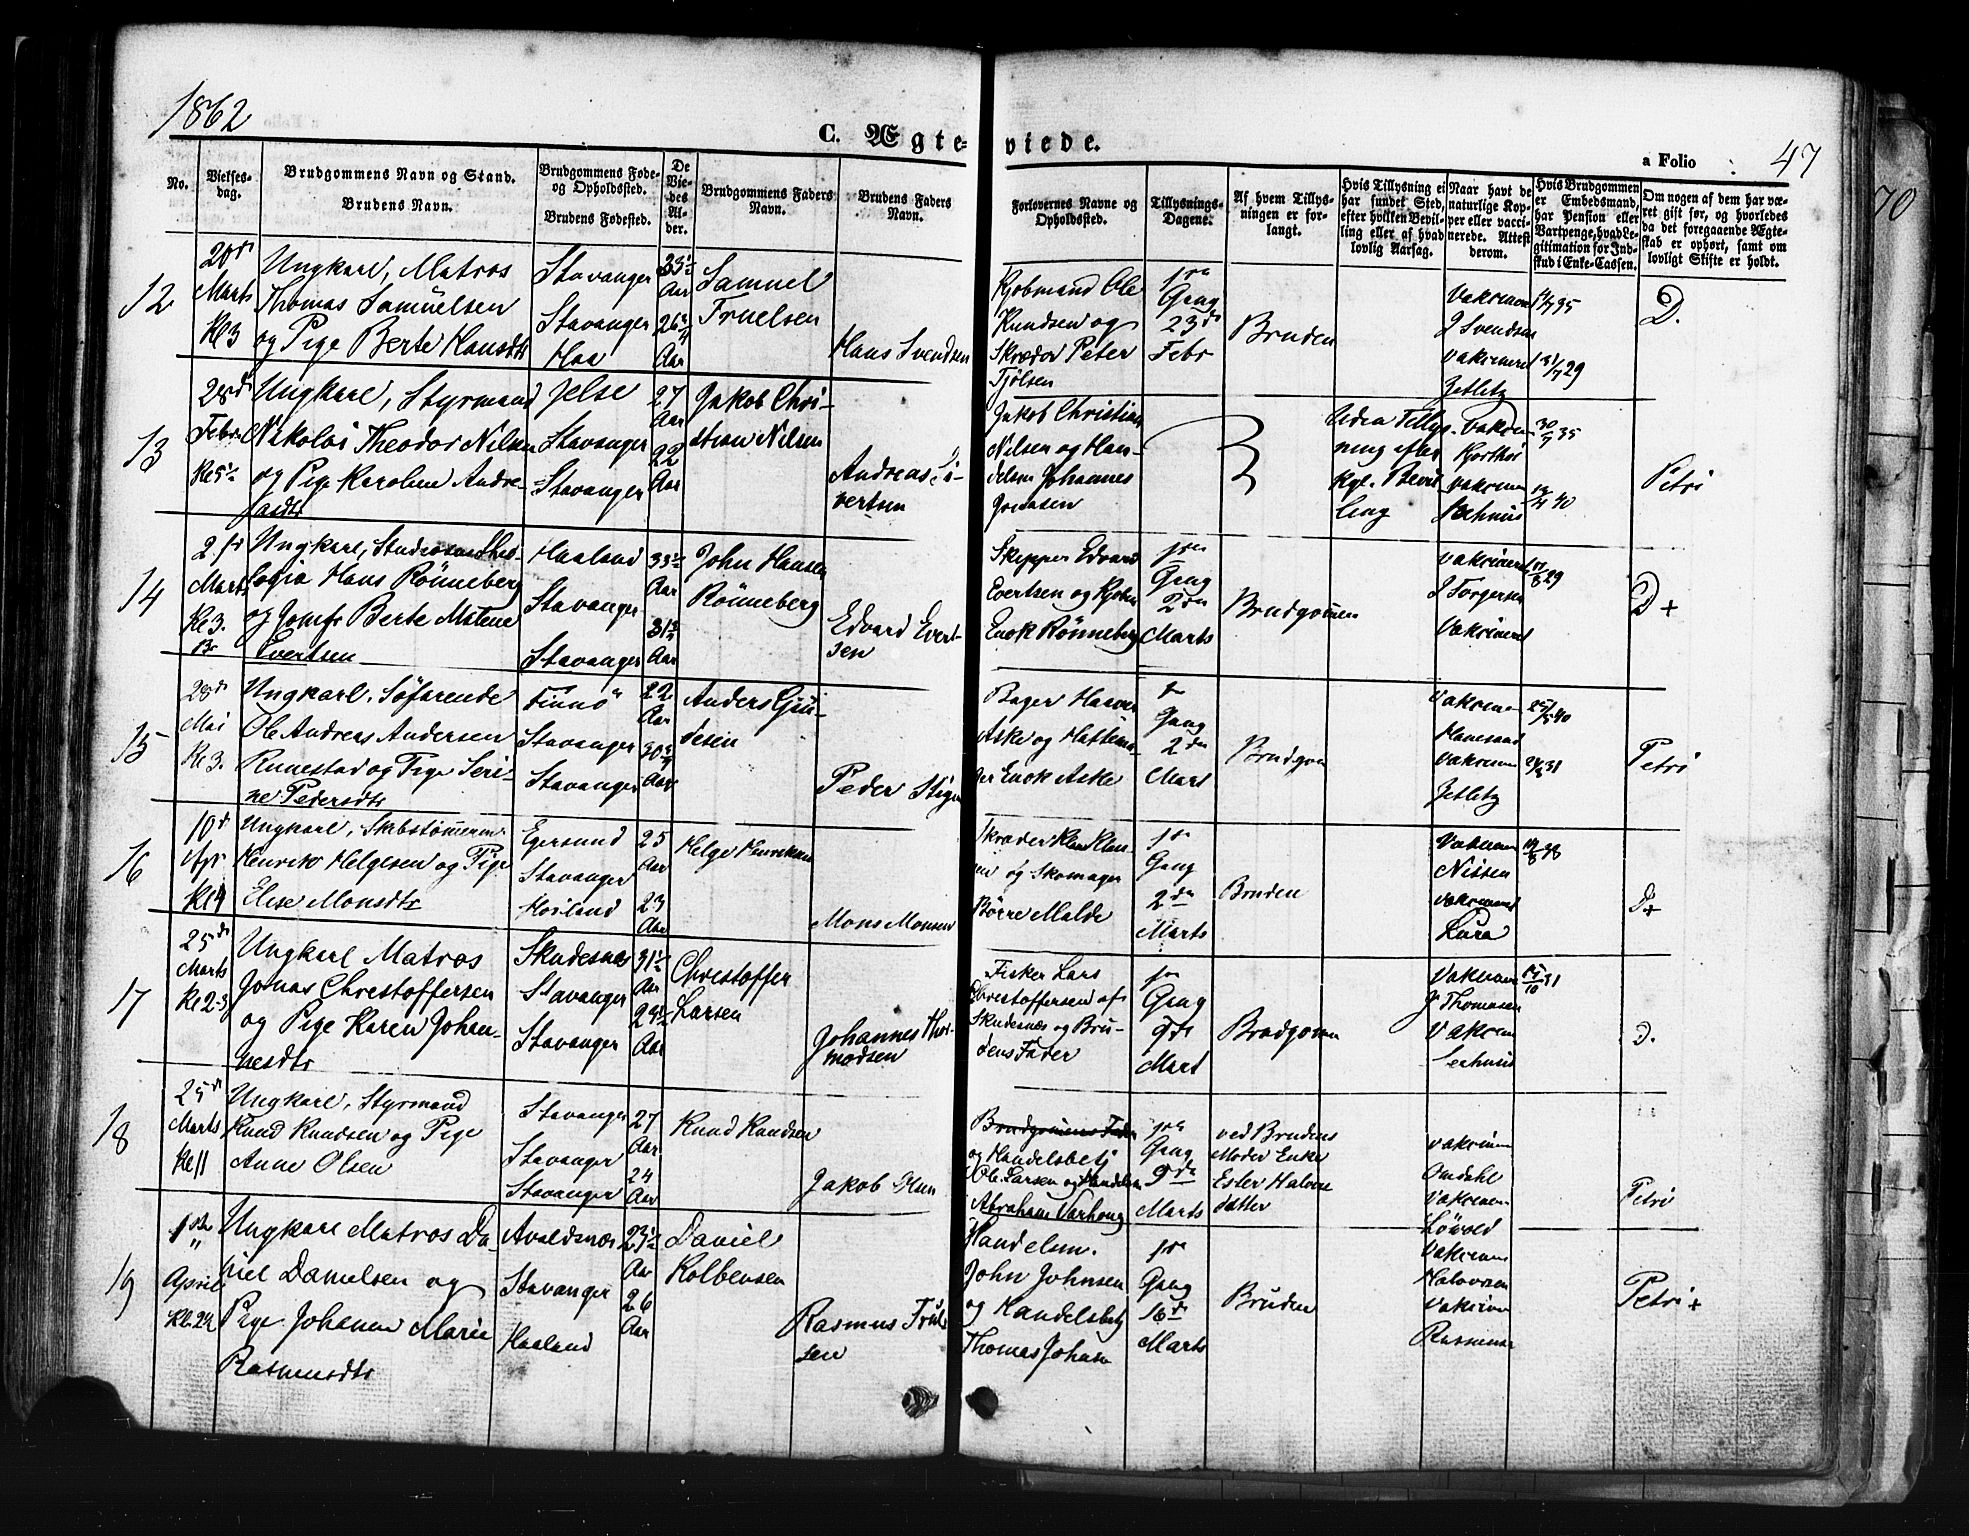 1862
C. Ægte- viede.
a Folio 47
70
No.
Vielses-
dag.
Brudgommens Navn og Stand.
Brudens Navn.
Brudgommens Føde-
og Opholdssted.
Brudens Fødested.
De
Vie-
des
Al-
der.
Brudgommens Faders
Navn.
Brudens Faders
Navn.
Forlovernes Navne og
Opholdssted.
Tillysnings-
Dagene.
Af hvem Tillys-
ningen er for-
langt.
Hvis Tillysning ei
har fundet Sted,
efter hvilken Bevil-
ling eller af hvad
lovlig Aarsag.
Naar havt de
naturlige Kop-
per eller vacci-
nerede. Attest
derom.
Hvis Brudgommen
er Embedsmand,
har Pension eller
Vartpenge, hvad Le-
gitimation for Ind-
skud i Enke-Cassen.
Om nogen af dem har væ-
ret gift før, og hvorledes
da det foregaaende Ægte-
skab er ophørt, samt om
lovligt Skifte er holdt.
12
20de
Marts
Kl 3
Ungkarl, Matros
Thomas Samuelsen
og Pige Berte Hansdtr
Stavanger
Stavanger
Haa
33½
Aar
26
Aar
Samuel
Truelsen
Hans Svendsen
Kjøbmand Ole
Knudsen og
Skræder Peter
Tjølsen
1ste
Gang
23de
Febr
Bruden
J Svendsen
Jetletz
D.
13
28de
Febr
Kl 5½
Ungkarl, Styrmand
Nikolai Theodor Nilsen
og Pige Karoline Andre-
asdtr
Jelse
Stavanger
Stavanger
27
Aar
22
Aar
Jakob Chri-
stian Nilsen
Andreas Si-
vertsen
Jakob Christian
Nilsen og Han-
delsm Johannes
Uden Tillys-
ning efter
Kgl. Bevil-
ling
Petri
14
2
Marts
Kl 3.
Ungkarl, Studiosus Theo-
logia Hans Rönneberg
og Jomfr Berte Malene
Evertsen
Haaland
Stavanger
Stavanger
33½
Aar
31½
Aar
John Hansen
Rönneberg
Edvard Evert-
sen
Skipper Edvard
Evertsen og Kjøbm
Enok Rönneberg
1ste
Gang
2den
Marts
Brudgomen
J Torgersen
D+
15
28de
Mai
Kl 3.
Ungkarl, Søfarende
Ole Andreas Andersen
Runestad og Pige Seri-
ne Pedersdtr
Finnö
Stavanger
Stavanger
22
Aar
30
Aar
Anders Gju-
desen
Peder Stigen
Bager Haaver
Aske og Hattema-
ger Enok Aske
Gang
2den
Mart
Brudgom
Jetletz
Petri
16
10de
Apr
Kl 4
Ungkarl, Skibstömerm
Henrik Helgesen og Pige
Elise Monsdtr
Egersund
Stavanger
Höiland
25
Aar
23
Aar
Helge Henriksen
Mons Monsen
og Skomager
Börre Malde
Gang
2den
Marts
Bruden
Nissen
Lura
D+
17
25de
Marts
Kl 2-3
Ungkarl Matros
Jonas Christoffersen
og Pige Karen Johan-
nesdtr
Skudesnæs
Stavanger
Stavanger
31½
Aar
23½
Aar
Christoffer
Larsen
Johannes Thor-
modsen
Fisker Lars
Christoffersen af
Skudesnæs og Bru-
dens Fader
Gang
9de
Mart
Brudgomen
J Thomasen
D.
18
25de
Marts
Kl 11
Ungkarl, Styrmand
Knud Knudsen og Pige
Anne Olsen
Stavanger
Stavanger
Stavanger
27
Aar
24
Aar
Knud Knudsen
Jakob Olsen
Brudgomens Fader
og Handelsbetj
Ole Larsen og Handelsm
Abraham Varhoug
1ste
Gang
9de
Marts
ved Brudens
Moder Enke
Ester Halvors
datter
Omdahl
Lövold
Petri
19
1ste
April
Ungkarl Matros Da-
niel Danielsen og
Pige Johanne Marie
Rasmusdtr
Avaldsnæs
Stavanger
Haaland
23½
Aar
26
Aar
Daniel
Kolbensen
Rasmus Trul-
sen
Handelsm.
John Johnsen
og Handelsbetj
Thomas Johnsen
1ste
Gang
16de
Marts
Bruden
Petri+